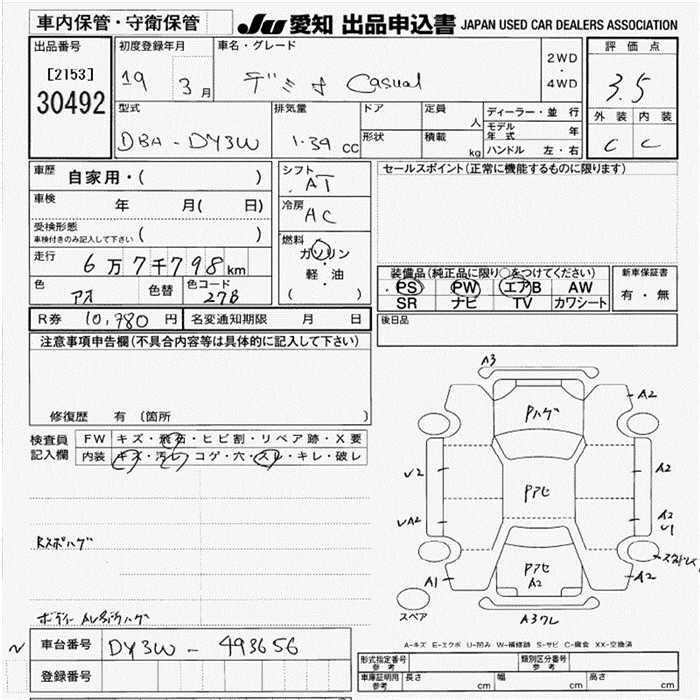 車内保管・守衛保管 JU 愛知 出品申込書 JAPAN USED CAR DEALERS ASSOCIATION
出品番号 初度登録年月 車名・グレード 2WD ・ 4WD 評価点
[2153] 30492 19 3月 デミオ Casual 3.5
外装 内装
C C
型式 排気量 ドア 定員 人 ディーラー・並行
DBA-DY3W 1.39 CC 形状 積載 kg モデル年式 年
ハンドル 左・右
車歴 自家用・( ) シフト AT セールスポイント(正常に機能するものに限ります)
車検 年 月( 日) 冷房 AC
受検形態 車検付きのみ記入して下さい ( )
燃料 ガソリン ・ 軽・油 ( )
走行 6万7千798km
色 アオ 色替 色コード 27B
装備品(純正品に限り○をつけてください) 新車保証書
PS PW エアB AW 有・無
SR ナビ TV カワシート
R券 10,980円 名変通知期限 月 日 後日品
注意事項申告欄(不具合内容等は具体的に記入して下さい)
修復歴 有 (箇所 )
検査員記入欄 FW キズ・飛石・ヒビ割・リペア跡・X要
内装 キズ・汚レ・コゲ・穴・スレ・キレ・破レ
A3
A2
Pハゲ
√2
A2
Pアセ
√A2
A2
√1
Rスポハゲ
Pアセ
A2
A1
A2
スペア
A3ワレ
A-キズ E-エクボ U-凹み W-補修跡 S-サビ C-腐食 XX-交換済
車台番号 DY3W-493656
登録番号
形式指定番号 参考 類別区分番号 参考
車庫証明用 参考 長さ cm 幅 cm 高さ cm